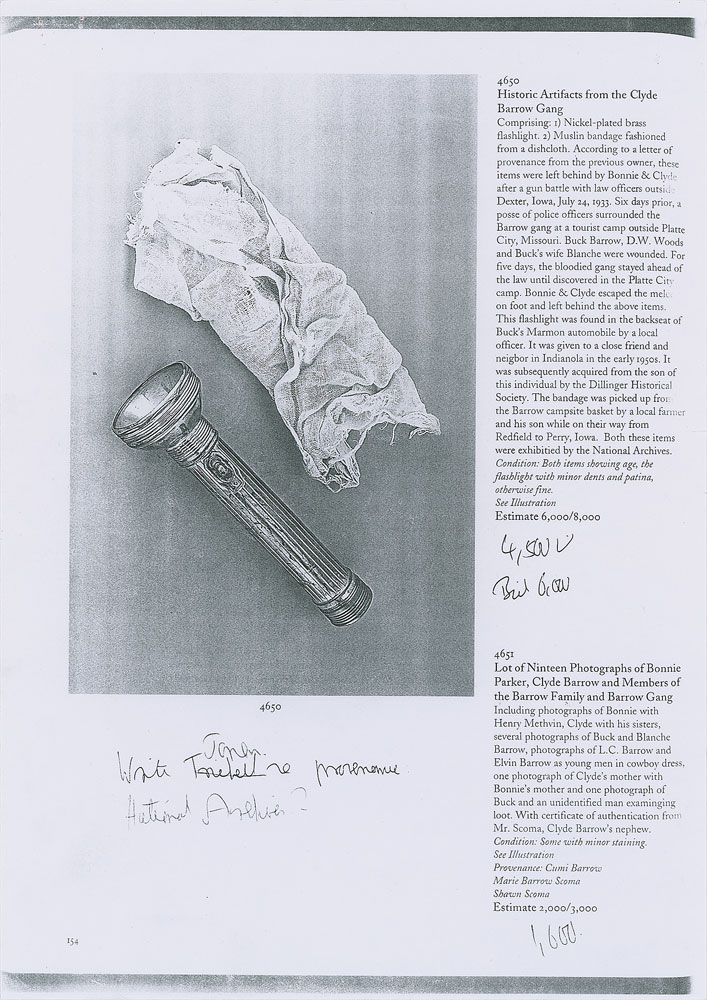 4650
Historic Artifacts from the Clyde
Barrow Gang
Comprising: 1) Nickel-plated brass
flashlight. 2) Muslin bandage fashioned
from a dishcloth. According to a letter of
provenance from the previous owner, these
items were left behind by Bonnie & Clyde
after a gun battle with law officers outside
Dexter, Iowa, July 24, 1933. Six days prior, a
posse of police officers surrounded the
Barrow gang at a tourist camp outside Platte
City, Missouri. Buck Barrow, D.W. Woods
and Buck's wife Blanche were wounded. For
five days, the bloodied gang stayed ahead of
the law until discovered in the Platte City
camp. Bonnie & Clyde escaped the mele
on foot and left behind the above items.
This flashlight was found in the backseat of
Buck's Marmon automobile by a local
officer. It was given to a close friend and
neigbor in Indianola in the early 1950s. It
was subsequently acquired from the son of
this individual by the Dillinger Historical
Society. The bandage was picked up from
the Barrow campsite basket by a local farmer
and his son while on their way from
Redfield to Perry, Iowa. Both these items
were exhibitied by the National Archives.
Condition: Both items showing age, the
flashlight with minor dents and patina,
otherwise fine.
See Illustration
Estimate 6,000/8,000
4,500
Bid 6,000
4650
Write re provenance
National Archives?
4651
Lot of Ninteen Photographs of Bonnie
Parker, Clyde Barrow and Members of
the Barrow Family and Barrow Gang
Including photographs of Bonnie with
Henry Methvin, Clyde with his sisters,
several photographs of Buck and Blanche
Barrow, photographs of L.C. Barrow and
Elvin Barrow as young men in cowboy dress,
one photograph of Clyde's mother with
Bonnie's mother and one photograph of
Buck and an unidentified man examinging
loot. With certificate of authentication from
Mr. Scoma, Clyde Barrow's nephew.
Condition: Some with minor staining.
See Illustration
Provenance: Cumi Barrow
Marie Barrow Scoma
Shawn Scoma
Estimate 2,000/3,000
1,600.
154